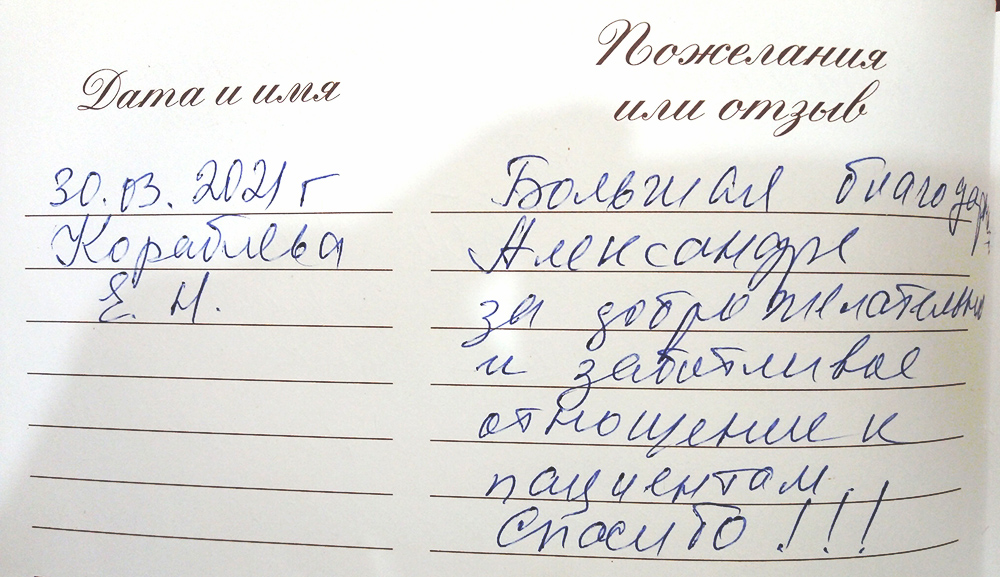 Дата и имя
30.03.2021 г
Кораблева
Е. Н.
Пожелания
или отзыв
Большая благодарн.
Александре
за доброжелательн
и заботливое
отношение к
пациентам.
Спасибо!!!